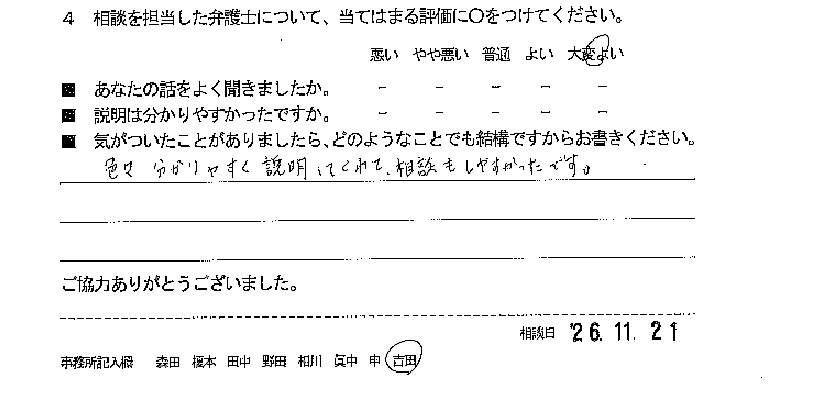 4 相談を担当した弁護士について、当てはまる評価に〇をつけてください。
悪い やや悪い 普通 よい 大変よい
■ あなたの話をよく聞きましたか。 - - - - -
■ 説明は分かりやすかったですか。 - - - - -
■ 気がついたことがありましたら、どのようなことでも結構ですからお書きください。
色々分かりやすく説明してくれて、相談もしやすかったです。
ご協力ありがとうございました。
相談日 '26.11.21
事務所記入欄 森田 榎本 田中 野田 相川 眞中 申 吉田